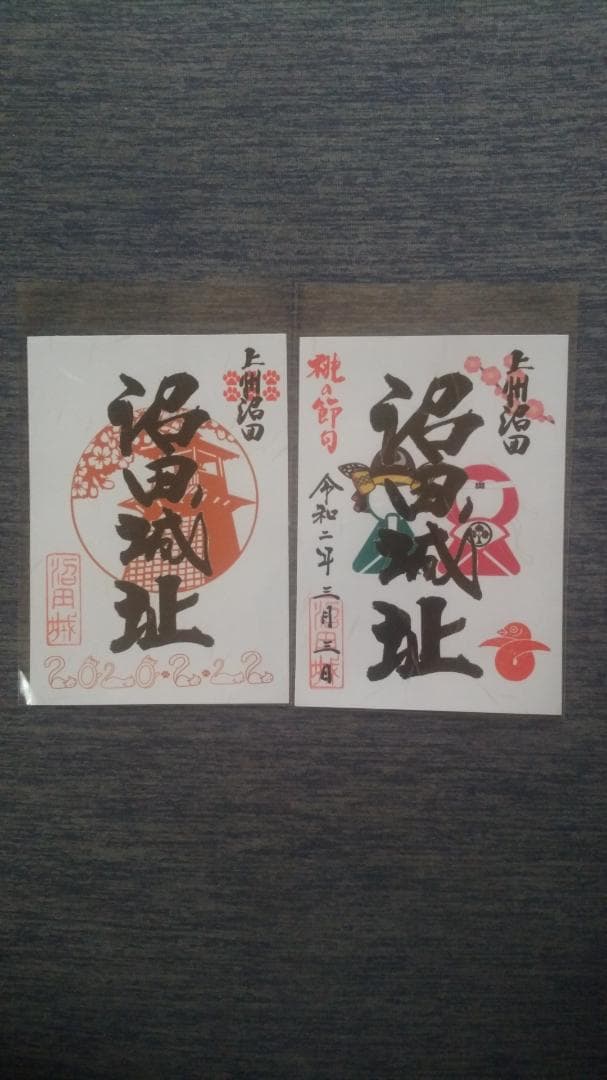 上州沼田
沼田城址
沼田城
2020.2.22
上州沼田
沼田城址
桃の節句
令和二年三月三日
沼田城